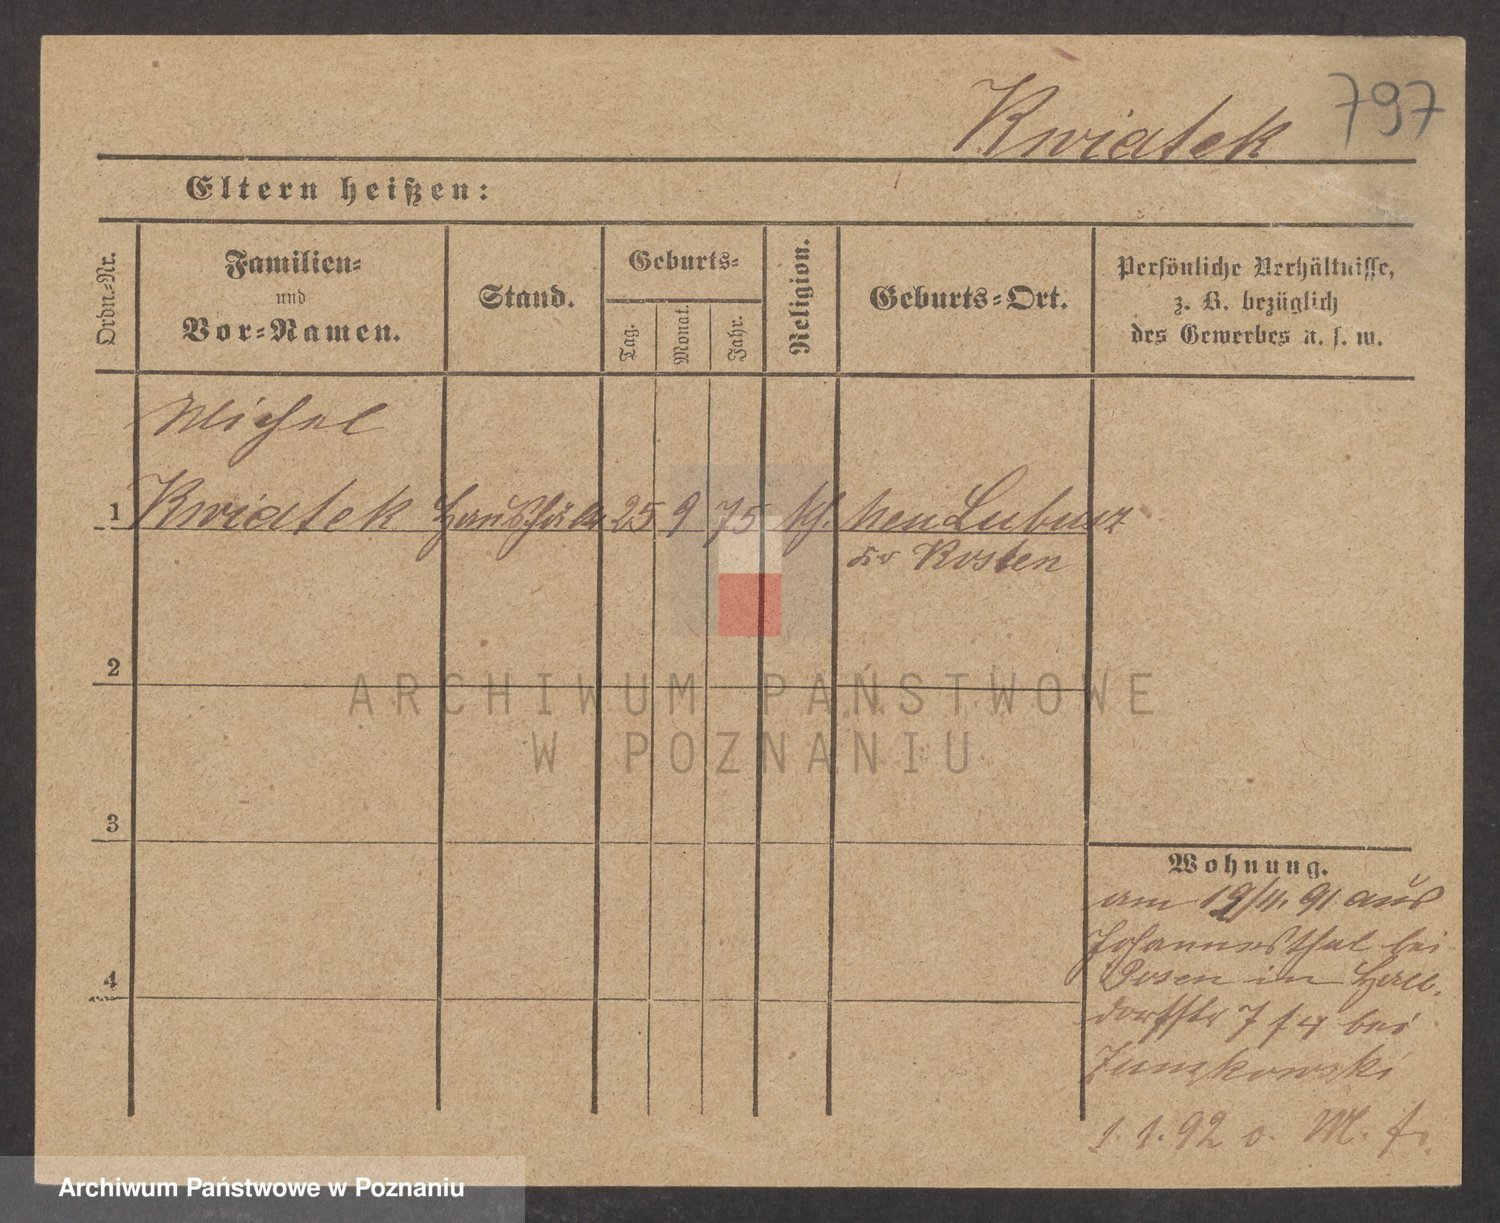 Kwiatek 797
Eltern heißen:
Ordn.-Nr.
Familien-
und
Vor-Namen.
Stand.
Geburts-
Tag.
Monat.
Jahr.
Religion.
Geburts-Ort.
Persönliche Verhältnisse,
z. B. bezüglich
des Gewerbes u. s. w.
Michel
1 Kwiatek 25 9 75 Neu Lubusz
Kr Kosten
2
ARCHIWUM PAŃSTWOWE
W POZNANIU
3
4
Wohnung.
am 19/11. 91 aus
Johannesthal bei
Posen in Halb-
dorfstr 7 bei
1. 1. 92 o. M. f.
Archiwum Państwowe w Poznaniu